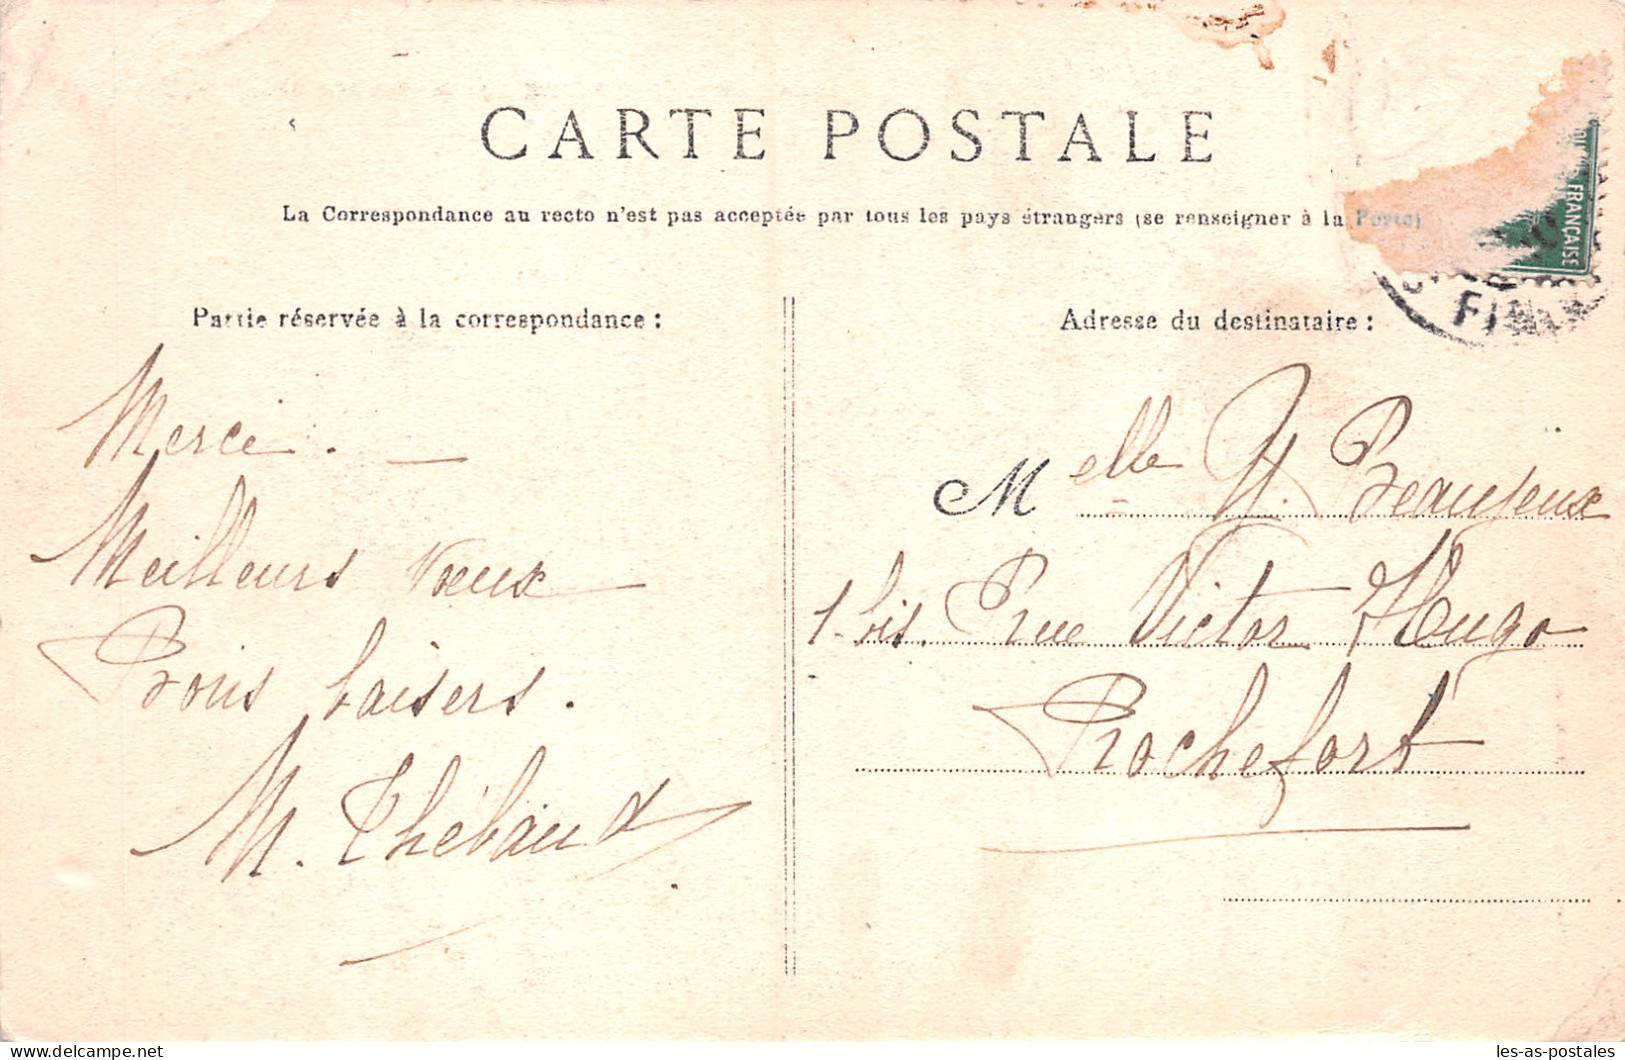 CARTE POSTALE
La Correspondance au recto n'est pas acceptée par tous les pays étrangers (se renseigner à la Poste)
FRANÇAISE
Partie réservée à la correspondance :
Adresse du destinataire :
FIN
Merci. —
Meilleurs voeux
Bons baisers.
M. Thébaud
Melle Y. Beaujeux
1 bis. Rue Victor Hugo
Rochefort
les-as-postales